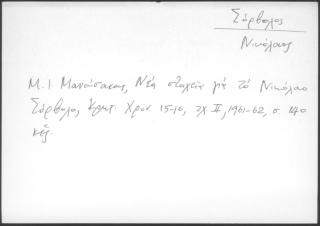 Σόρβολος
Νικόλαος
Μ. Ι. Μανούσακας, Νέα στοιχεῖα γιά τό Νικόλαο
Σόρβολο, Κρητ. Χρον. 15-16, τχ. ΙΙ, 1961-62, σ. 140
κἑ.